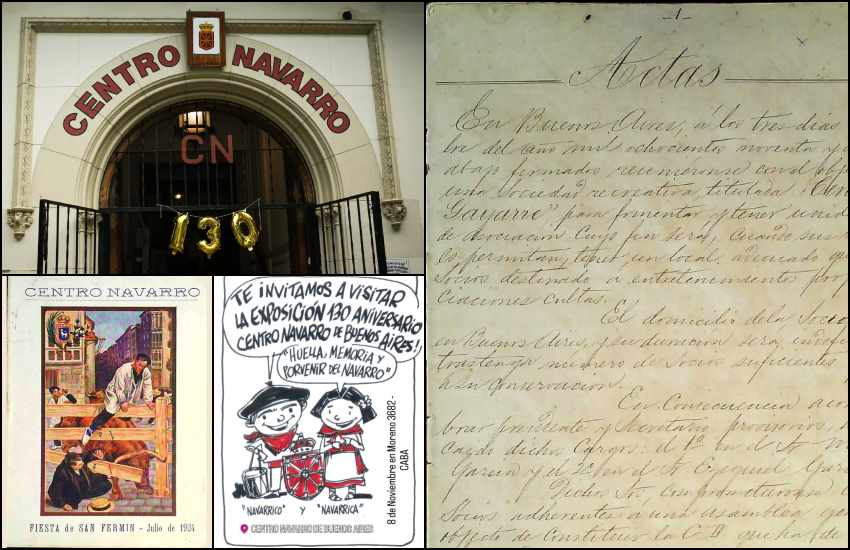 CENTRO NAVARRO
CN
130
CENTRO NAVARRO
FIESTA de SAN FERMIN - Julio de 1924
TE INVITAMOS A VISITAR
LA EXPOSICIÓN 130 ANIVERSARIO
CENTRO NAVARRO DE BUENOS AIRES!
"HUELLA, MEMORIA Y
PORVENIR DEL NAVARRO"
"NAVARRICO" Y "NAVARRICA"
CENTRO NAVARRO DE BUENOS AIRES
8 de Noviembre en Moreno 3682 -
CABA
-1-
Actas
En Buenos Aires, á los tres dias
bre del año mil ochocientos noventa y
abajo firmados reuniéronse con el obj
una Sociedad recreativa, titulada "Cen
Gayarre" para fomentar y tener unid
de asociacion cuyo fin será, cuando sus
permitan, tener un local adecuado
Socios destinado a entretenimientos pro
ciaciones cultas.
El domicilio de la Socie
en Buenos Aires, y su duracion será indefi
tras tenga número de Socios suficientes
a su conservacion.
En Consecuencia aco
brar presidente y Secretario provisorios
dichos Cargos: el 1º en el Sr
y el 2º en el Sr Ezequiel Gar
Dichos Sres comprometieronse
Socios adherentes a una asamblea ge
objeto de Constituir la C D que ha de